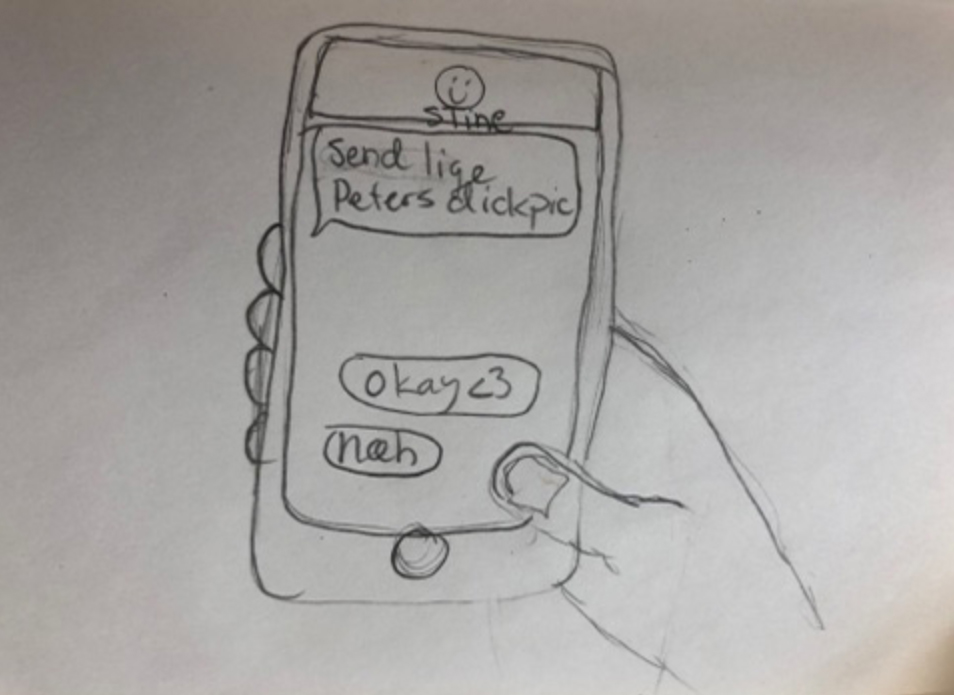 stine
Send lige
Peters dickpic
okay <3
næh